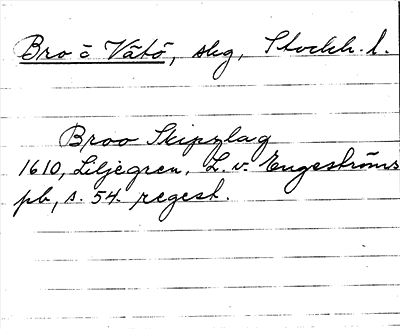 Bro o Vätö, skg, Stockh. l.
Broo Skipzlag
1610, Liljegren, L. v. Engeströms
pb, s. 54. regest.